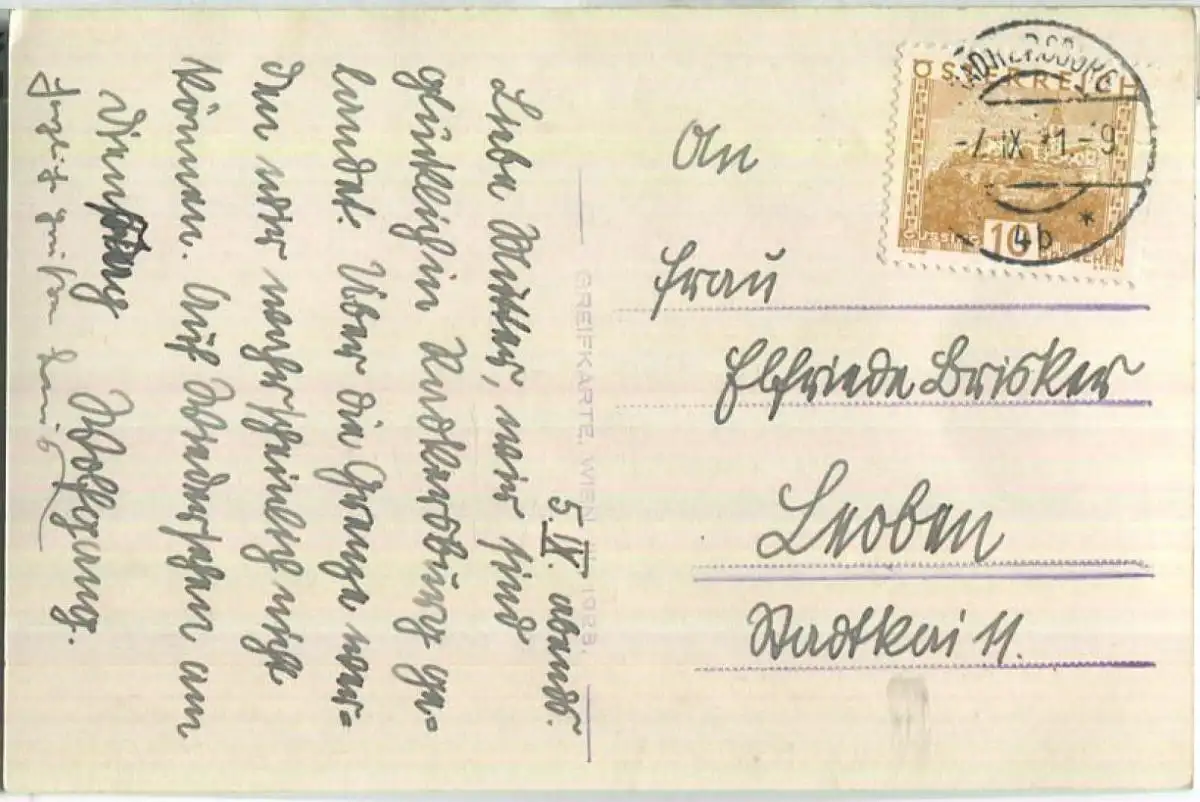 5. IX. abends.
Liebe Mutter, wir sind
glücklich in Radkersburg ge=
landet. Über die Grenze wer=
den wir wahrscheinlich nicht
können. Auf Wiedersehen am
Dienstag Wolfgang.
An
Frau
Elfriede Brisker
Leoben
Stadtkai 11.
ÖSTERREICH
GÜSSING 10 GROSCHEN
ADKERSBURG
-7 IX 31-9
4b *
GREIFKARTE, WIEN 1928.